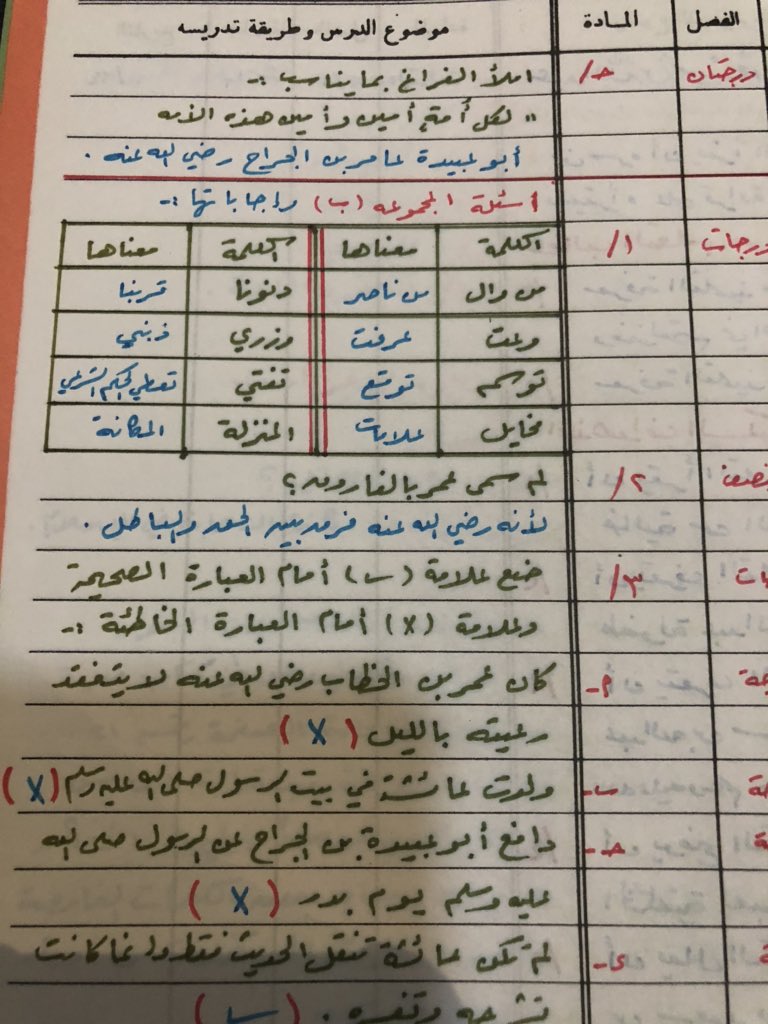 الفصل المادة موضوع الدرس وطريقة تدريسه
درجتان حـ/ املأ الفراغ بما يناسب :-
" لكل أمةٍ أمين وأمين هذه الأمه
أبو عبيدة عامر بن الجراح رضي الله عنه .
أسئلة المجموعه (ب) وإجاباتها :-
درجات ١/ الكلمة معناها الكلمة معناها
من وال من ناصر دنونا قربنا
وعت عرفت وزري ذنبي
توسم توقع تفتي تعطي الحكم الشرعي
مخايل علامات المنزلة المكانة
نصف ٢/ لم سمى عمر بالفاروق ؟
لأنه رضي الله عنه فرق بين الحق والباطل .
٣/ ضع علامة (س) أمام العبارة الصحيحة
وعلامة (X) أمام العبارة الخاطئة :-
م- كان عمر بن الخطاب رضي الله عنه لا يتفقد
رعيته بالليل (X)
ب- ولدت عائشة في بيت الرسول صلى الله عليه وسلم (X)
حـ- دافع أبو عبيدة بن الجراح عن الرسول صلى الله
عليه وسلم يوم بدر (X)
ى- لم تكن عائشة تنقل الحديث فقط وإنما كانت
تشرحه وتفسره . (س)